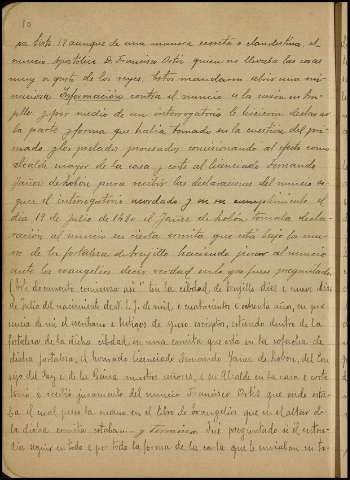 10
aunque de una manera secreta o clandestina, el
nuncio Apostólico D. Francisco Ortiz quien no llevaba las cosas
muy a gusto de los reyes. Estos mandaron abrir una mi-
nuciosa Información contra el nuncio a la sazón en Tru-
jillo y por medio de un interrogatorio le hicieron declarar
la parte y forma que había tomado en la cuestión del
y los prelados comisionando al efecto como
alcalde mayor de la casa y corte al licenciado Fernando
Yañez de Lobón para recibir las declaraciones del nuncio se-
gun el interrogatorio acordado y en su cumplimiento el
día 19 de julio de 1480 el Yañez de Lobón tomaba decla-
ración al nuncio en cierta ermita que está bajo
de la fortaleza de Trujillo haciendo jurar al nuncio
ante los evangelios decir verdad en lo que fuese preguntado
(El documento comienza así: En la cibdad de Trujillo dies e nueve dias
de julio del nacimiento de N. S. J. de mill e cuatrocientos e ochenta años, en pre-
sencia de mi el escribano e testigos de yuso escriptos, estando dentro de la
fortaleza de la dicha cibdad, en una ermita que esta en la
dicha fortaleza, el honrado licenciado Fernando Yañez de Lobon, del Con-
sejo del Rey e de la Reina nuestros señores, e su Alcalde en la casa e corte
e recibió juramento del nuncio Francisco Ortiz que ende esta-
ba el cual puso la mano en el libro de Evangelios que en el altar de
la dicha ermita estaban - y Termina: Fué preguntado si el
en todo e por todo la forma de la carta que le enviaban